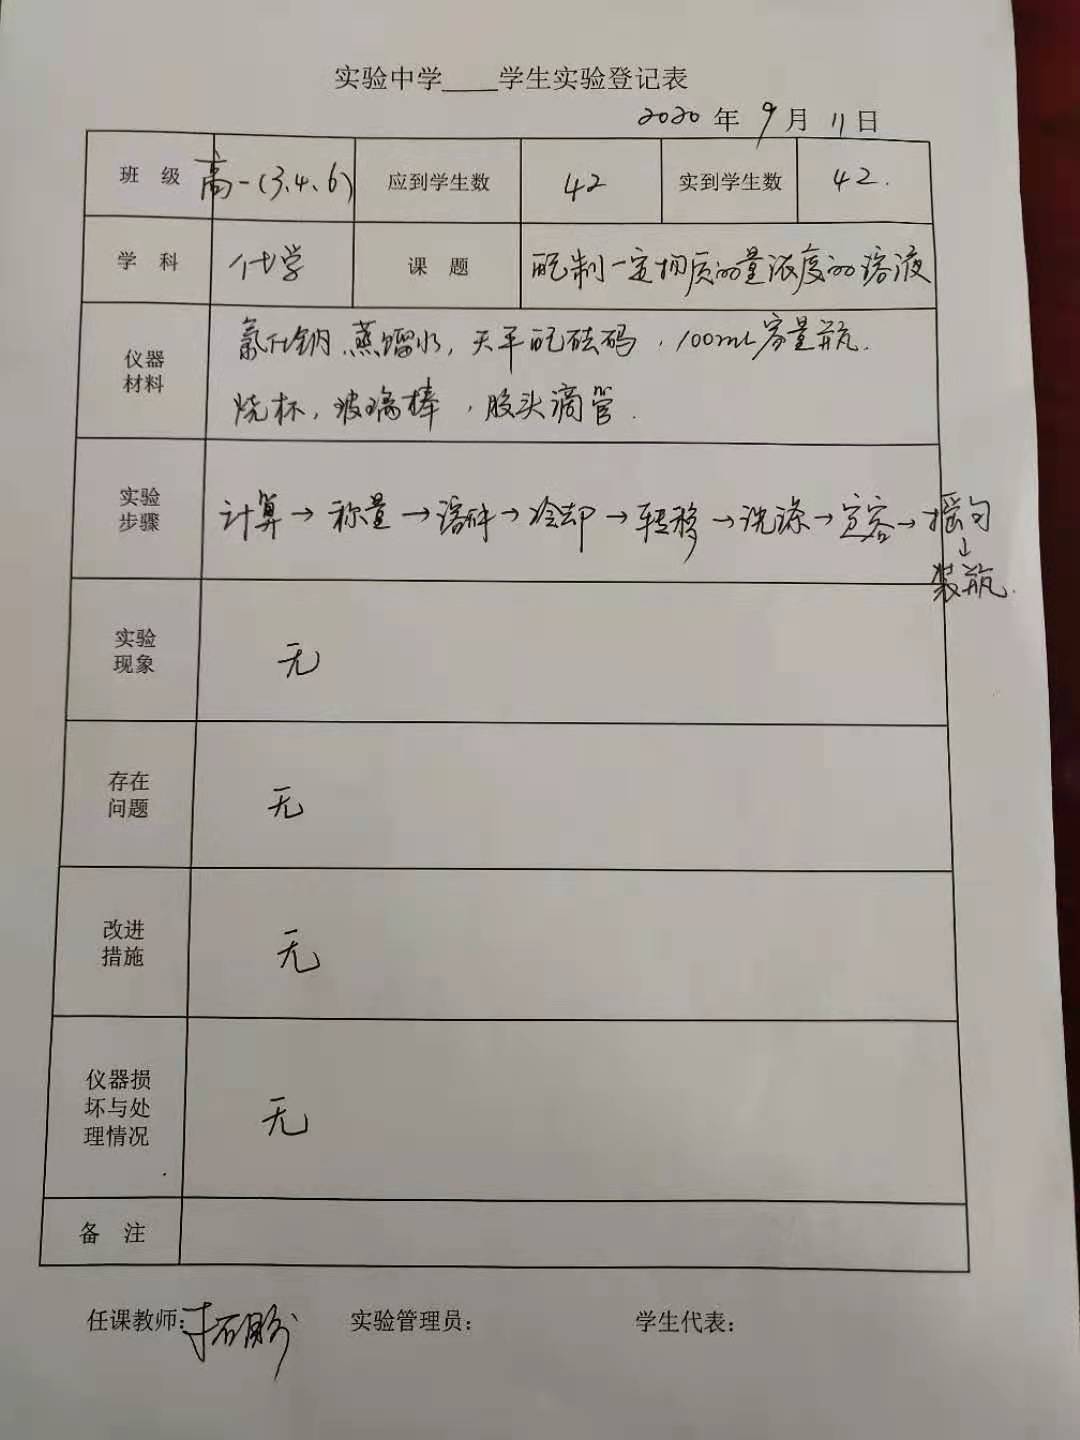 实验中学____学生实验登记表
2020 年 9 月 11 日
班 级 高一(3、4、6) 应到学生数 42 实到学生数 42.
学 科 化学 课 题 配制一定物质的量浓度的溶液
仪器
材料
氯化钠 蒸馏水, 天平配砝码, 100mL容量瓶.
烧杯, 玻璃棒, 胶头滴管.
实验
步骤
计算→称量→溶解→冷却→转移→洗涤→定容→摇匀
↓
装瓶.
实验
现象
无
存在
问题
无
改进
措施
无
仪器损
坏与处
理情况
无
备 注
任课教师: 实验管理员: 学生代表: